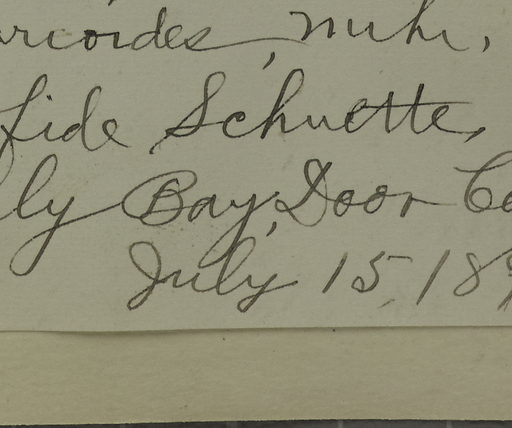 arcoides, Muhl,
fide Schuette,
ly Bay, Door Co
July 15, 189